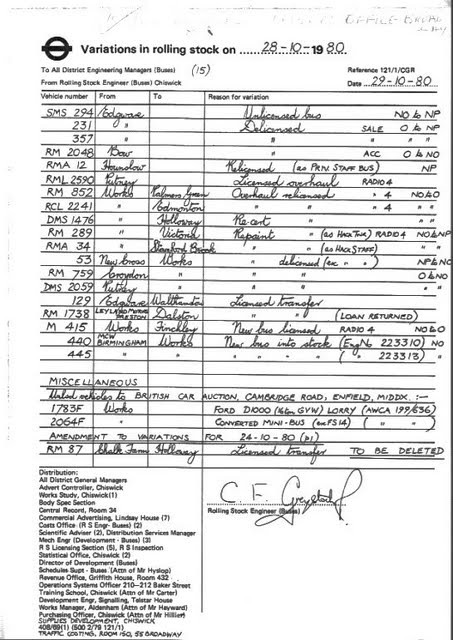 OFFICE BROAD
Variations in rolling stock on 28-10-1980
To All District Engineering Managers (Buses) (15) Reference 121/1/CGR
From Rolling Stock Engineer (Buses) Chiswick Date 29-10-80
Vehicle number From To Reason for variation
SMS 294 Edgware Unlicensed bus NO to NP
231 " Delicensed SALE O to NP
357 " " " "
RM 2048 Bow " ACC O to NO
RMA 12 Hounslow Relicensed (as PRIV. STAFF BUS) NP
RML 2590 Putney Licensed overhaul RADIO 4
RM 852 Works Palmers Green Overhaul relicensed " 4 NO to O
RCL 2241 " Edmonton " " 4 "
DMS 1476 " Holloway Re cert " "
RM 289 " Victoria Repaint (as HACK TRNG) RADIO 4 NO to NP
RMA 34 " Stamford Brook " " (as HACK STAFF) " "
53 New Cross Works " delicensed (ex " " ) NP to NO
RM 759 Croydon " " " O to NO
DMS 2059 Putney " " " "
129 Edgware Walthamstow Licensed transfer
RM 1738 LEYLAND MOTORS PRESTON Dalston " " (LOAN RETURNED)
M 415 Works Finchley New bus licensed RADIO 4 NO to O
440 MCW BIRMINGHAM Works New bus into stock (Eng No 223310) NO
445 " " " " ( " 223313) "
MISCELLANEOUS
Unlsd vehicles to BRITISH CAR AUCTION, CAMBRIDGE ROAD, ENFIELD, MIDDX. :-
1783F Works FORD D1000 (16ton GVW) LORRY (AWCA 199/636)
2064F " CONVERTED MINI-BUS (ex FS14) ( " " )
AMENDMENT TO VARIATIONS FOR 24-10-80 (p1)
RM 87 Chalk Farm Holloway Licensed transfer TO BE DELETED
Distribution:
All District General Managers
Advert Controller, Chiswick
Works Study, Chiswick (1)
Body Spec Section
Central Record, Room 34
Commercial Advertising, Lindsay House (7)
Costs Office (R S Engr- Buses) (2)
Scientific Adviser (2), Distribution Services Manager
Mech Engr (Development - Buses) (3)
R S Licensing Section (5), R S Inspection
Statistical Office, Chiswick (2)
Director of Development (Buses)
Schedules Supt - Buses (Attn of Mr Hyslop)
Revenue Office, Griffith House, Room 432
Operations Systems Officer 210-212 Baker Street
Training School, Chiswick (Attn of Mr Carter)
Development Engr, Signalling, Telstar House
Works Manager, Aldenham (Attn of Mr Hayward)
Purchasing Officer, Chiswick (Attn of Mr Hillier)
SUPPLIES DEVELOPMENT, CHISWICK
408/69(1) (500 2/79 121/1)
TRAFFIC COSTING, ROOM 150, 55 BROADWAY
C. F.
Rolling Stock Engineer (Buses)